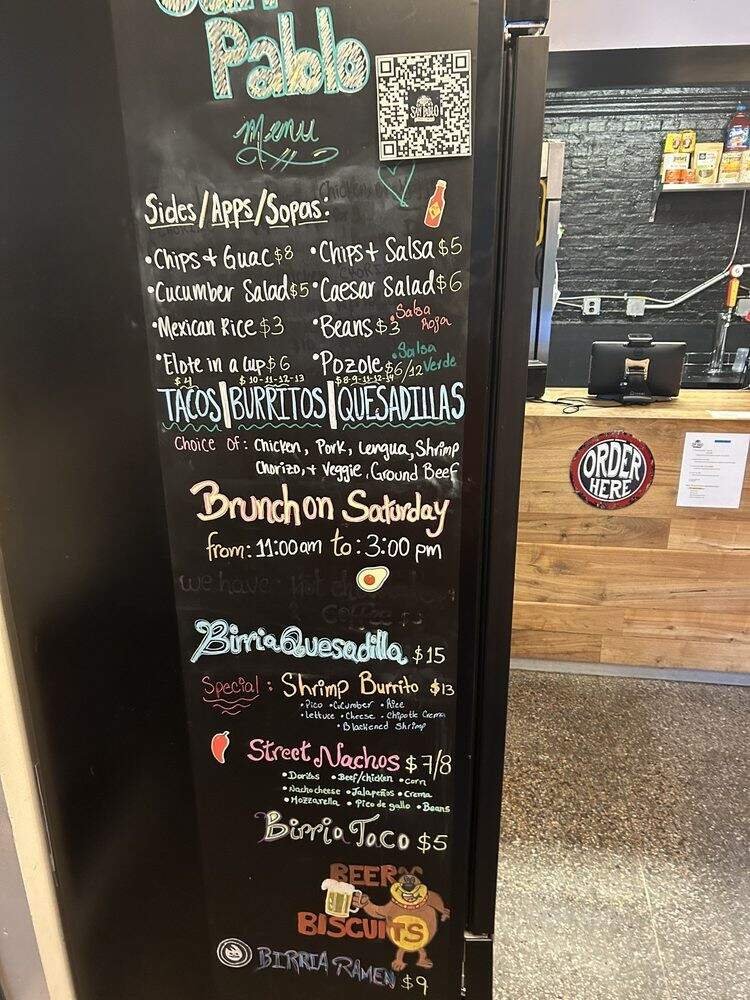 San
Pablo
Menu
SAN PABLO
Sides/Apps/Sopas:
•Chips + Guac $8 •Chips + Salsa $5
•Cucumber Salad $5 •Caesar Salad $6
•Mexican Rice $3 •Beans $3 •Salsa Roja
•Elote in a cup $6 •Pozole $6/12 •Salsa Verde
$4 $10-11-12-13
TACOS|BURRITOS|QUESADILLAS
Choice of: Chicken, Pork, Lengua, Shrimp
Chorizo, + Veggie, Ground Beef
Brunch on Saturday
from: 11:00am to: 3:00 pm
we have: Hot
Coffee
Birria Quesadilla $15
Special: Shrimp Burrito $13
•Pico •Cucumber •Rice
•Lettuce •Cheese •Chipotle Crema
•Blackened Shrimp
Street Nachos $7/8
•Doritos •Beef/chicken •corn
•Nacho cheese •Jalapeños •Crema
•Mozzarella •Pico de gallo •Beans
Birria Taco $5
BEER
BISCUITS
BIRRIA RAMEN $9
ORDER
HERE